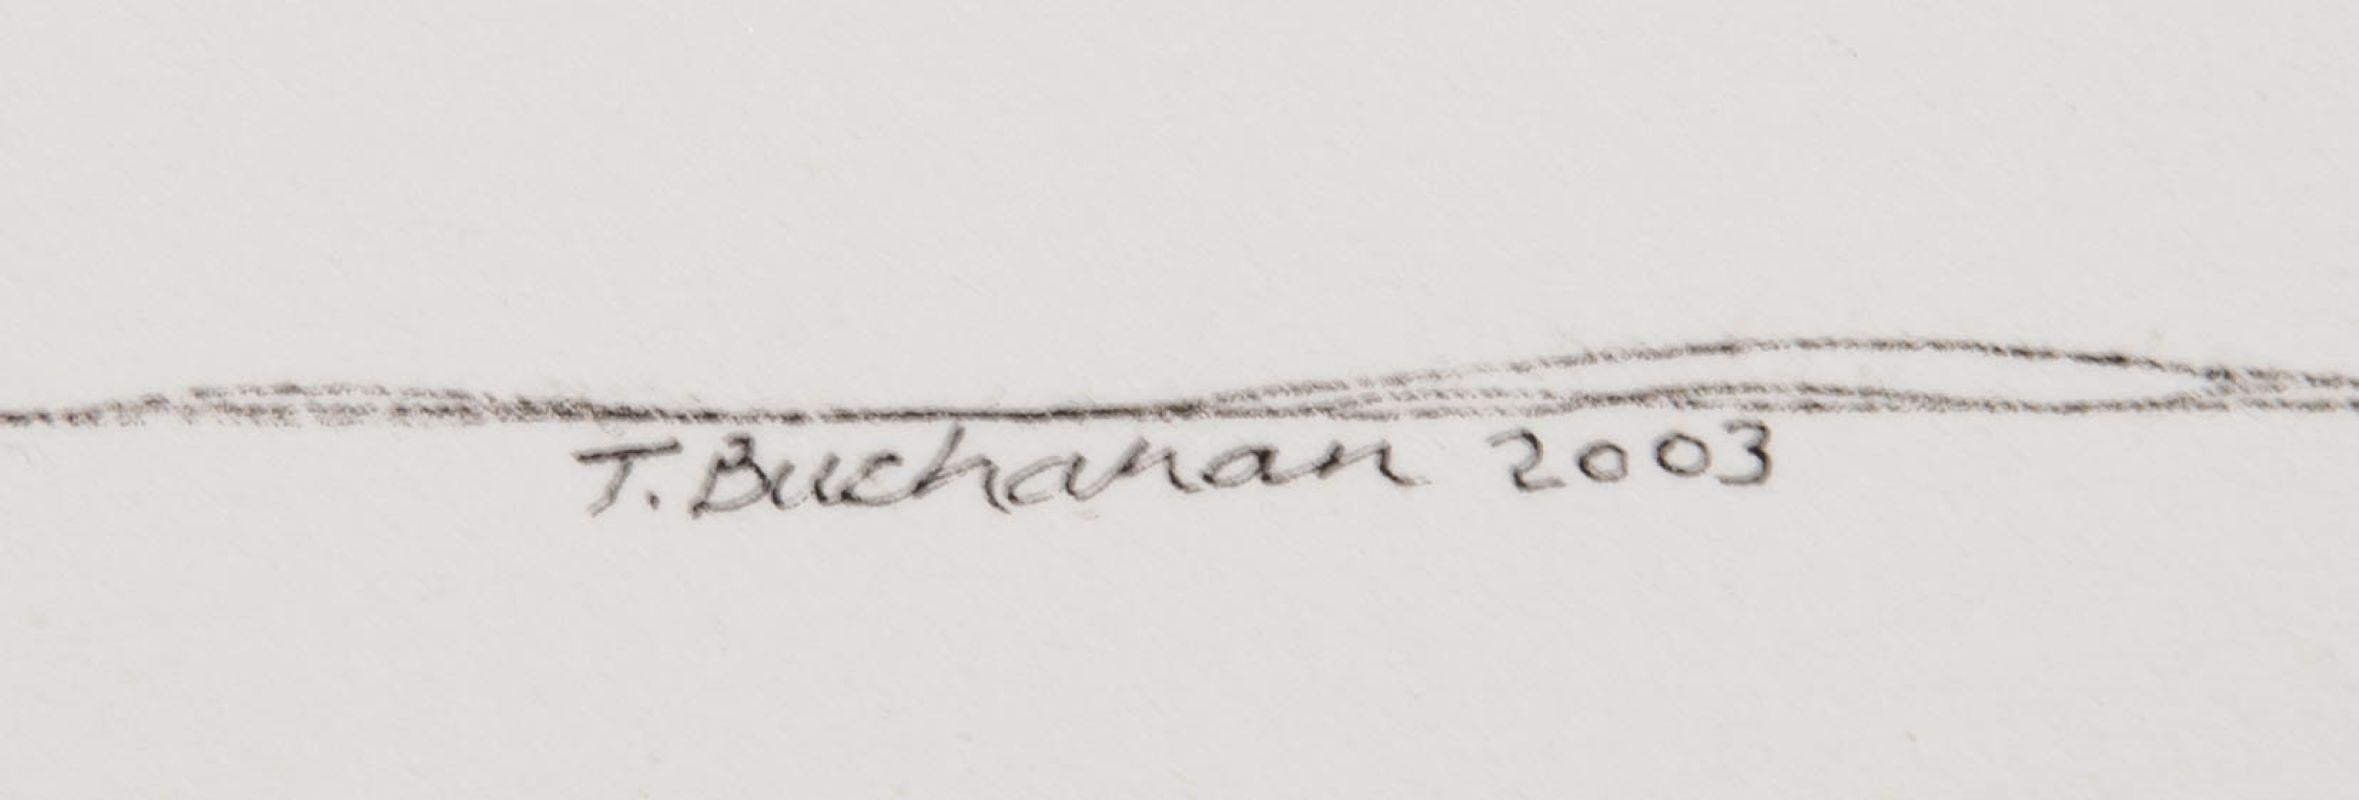 T. Buchanan 2003